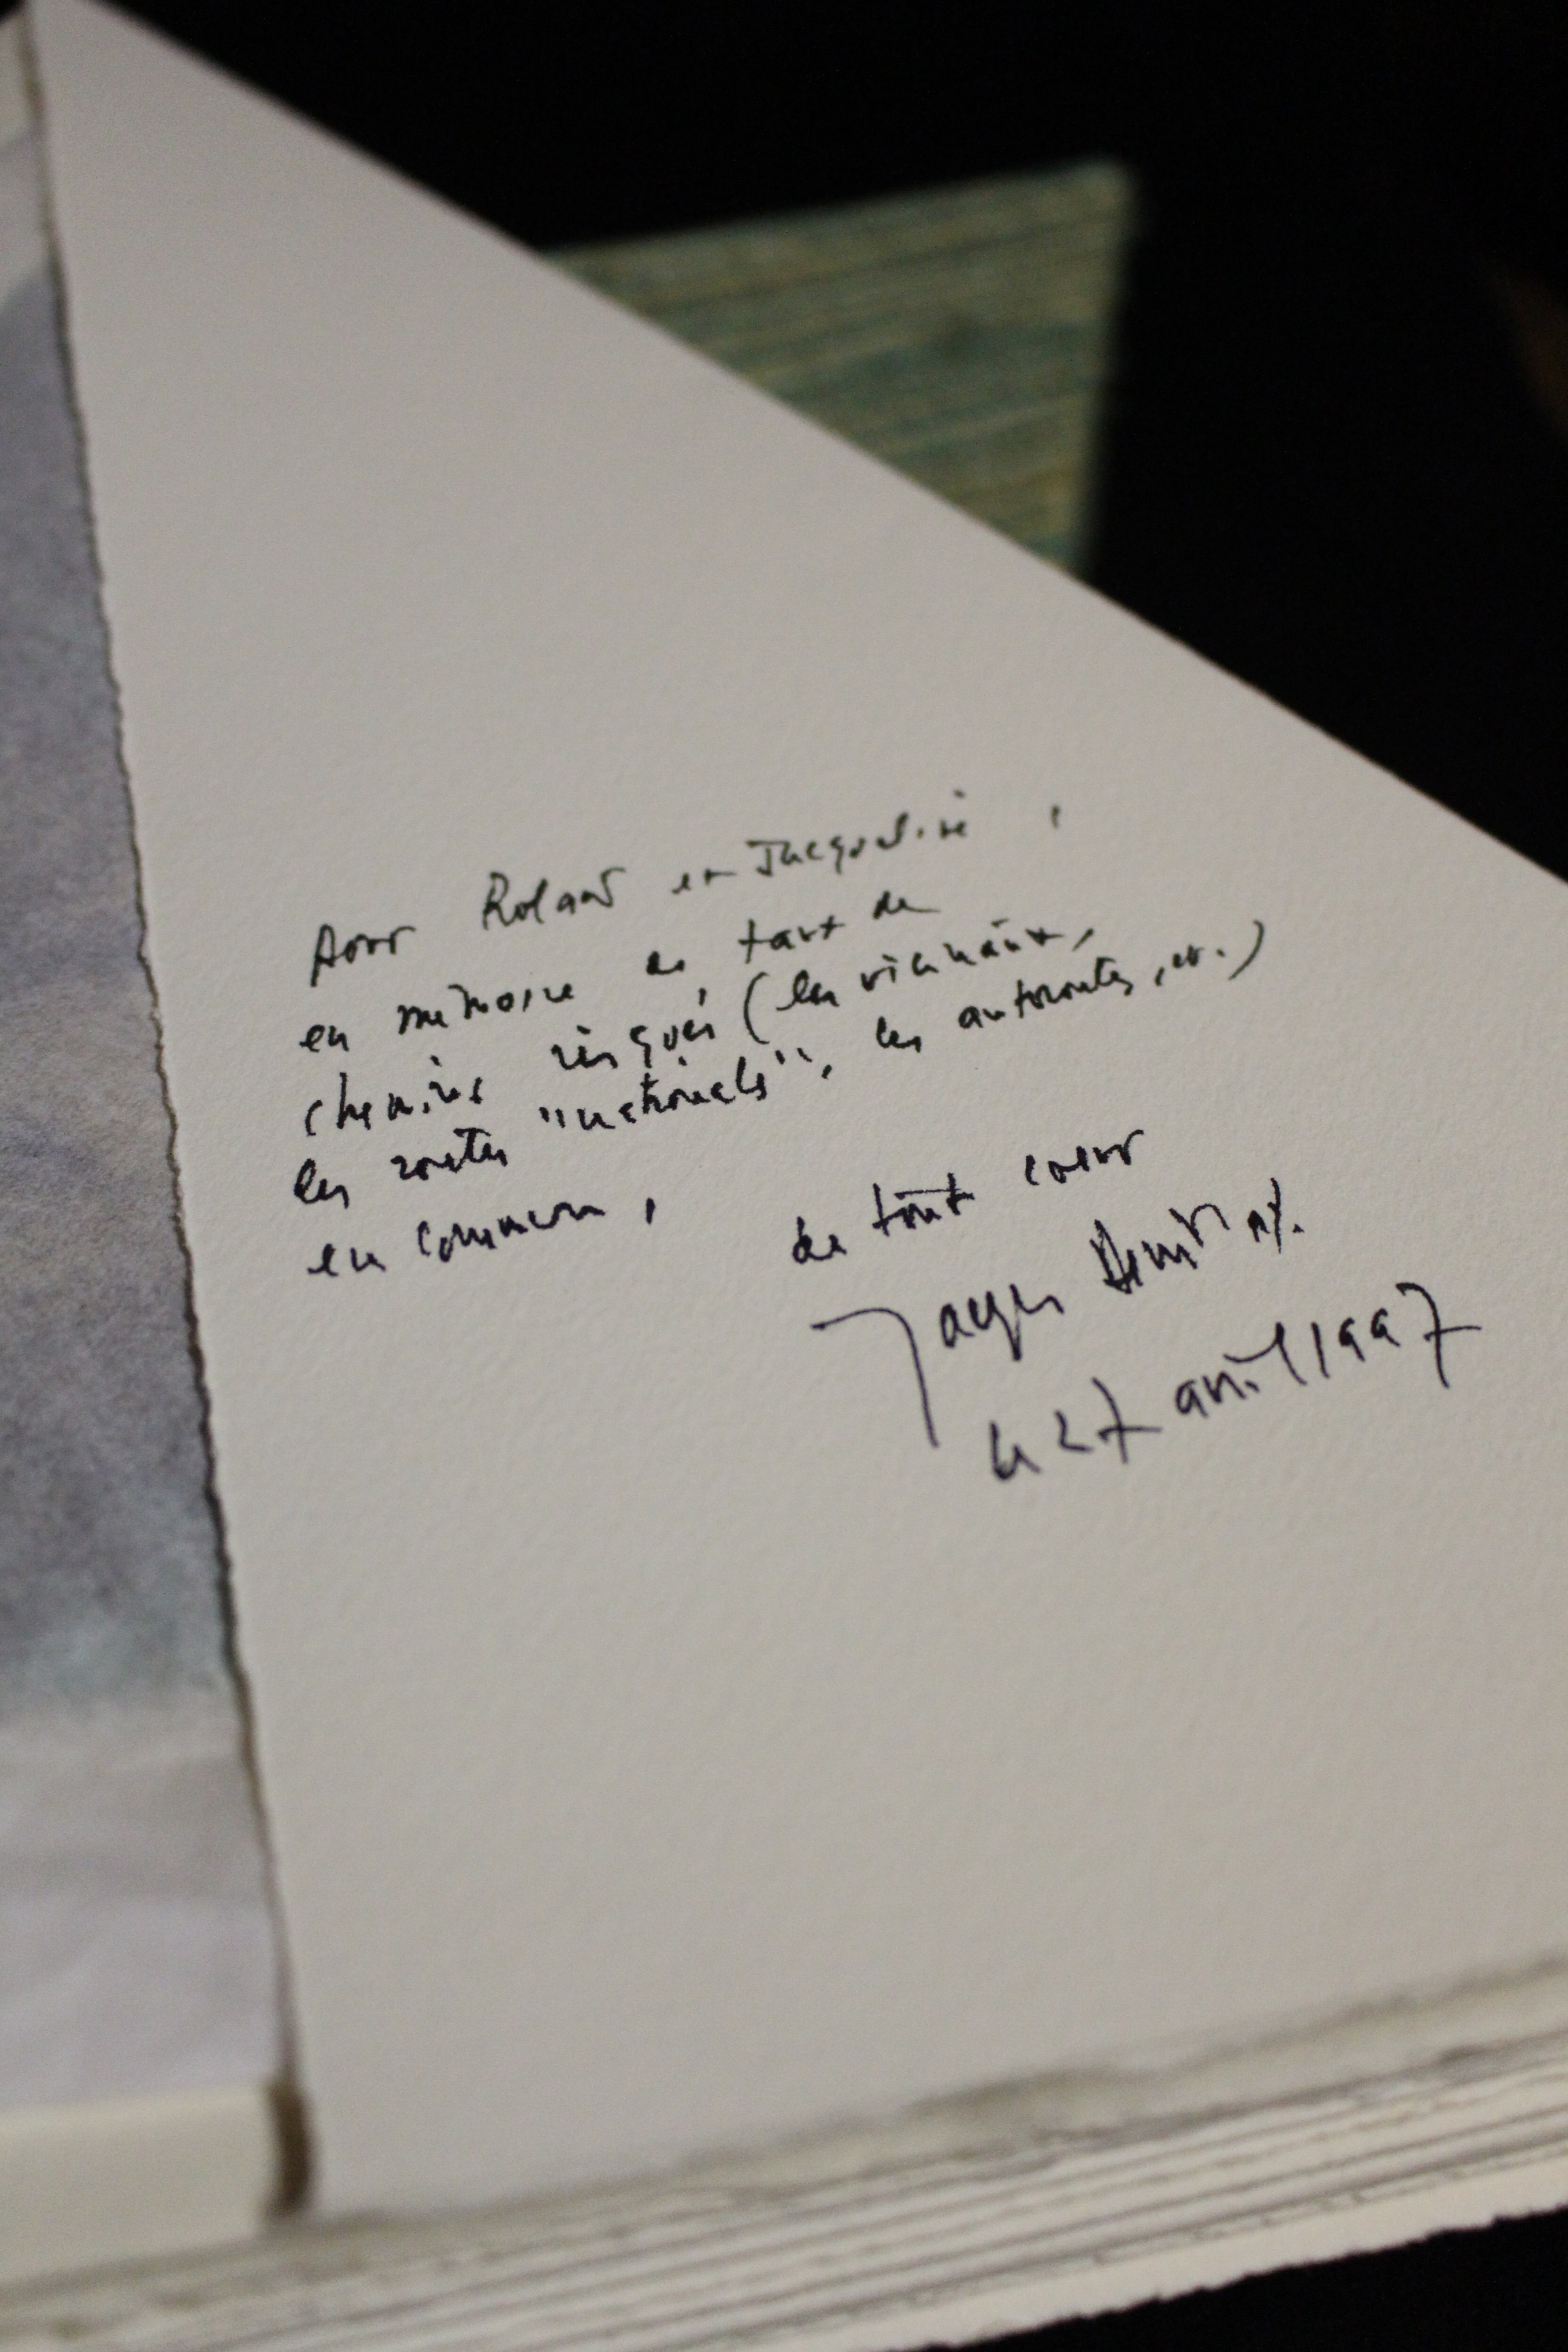 Pour Roland et Jacqueline,
en mémoire de tant de
chemins risqués (les vicinaux,
les routes "nationales", les autoroutes, etc.)
en commun,
de tout cœur
Jacques
le 27 avril 1997